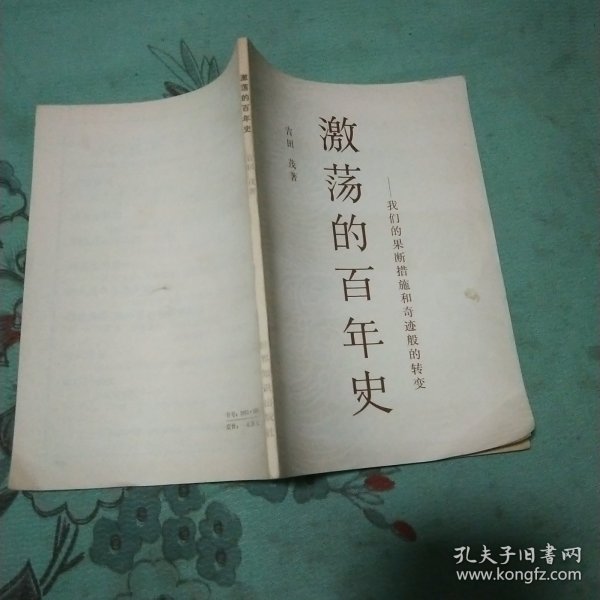 激荡的百年史
——我们的果断措施和奇迹般的转变
吉田 茂著
激荡的百年史
书号：
定价：
孔夫子旧书网
www.kongfz.com